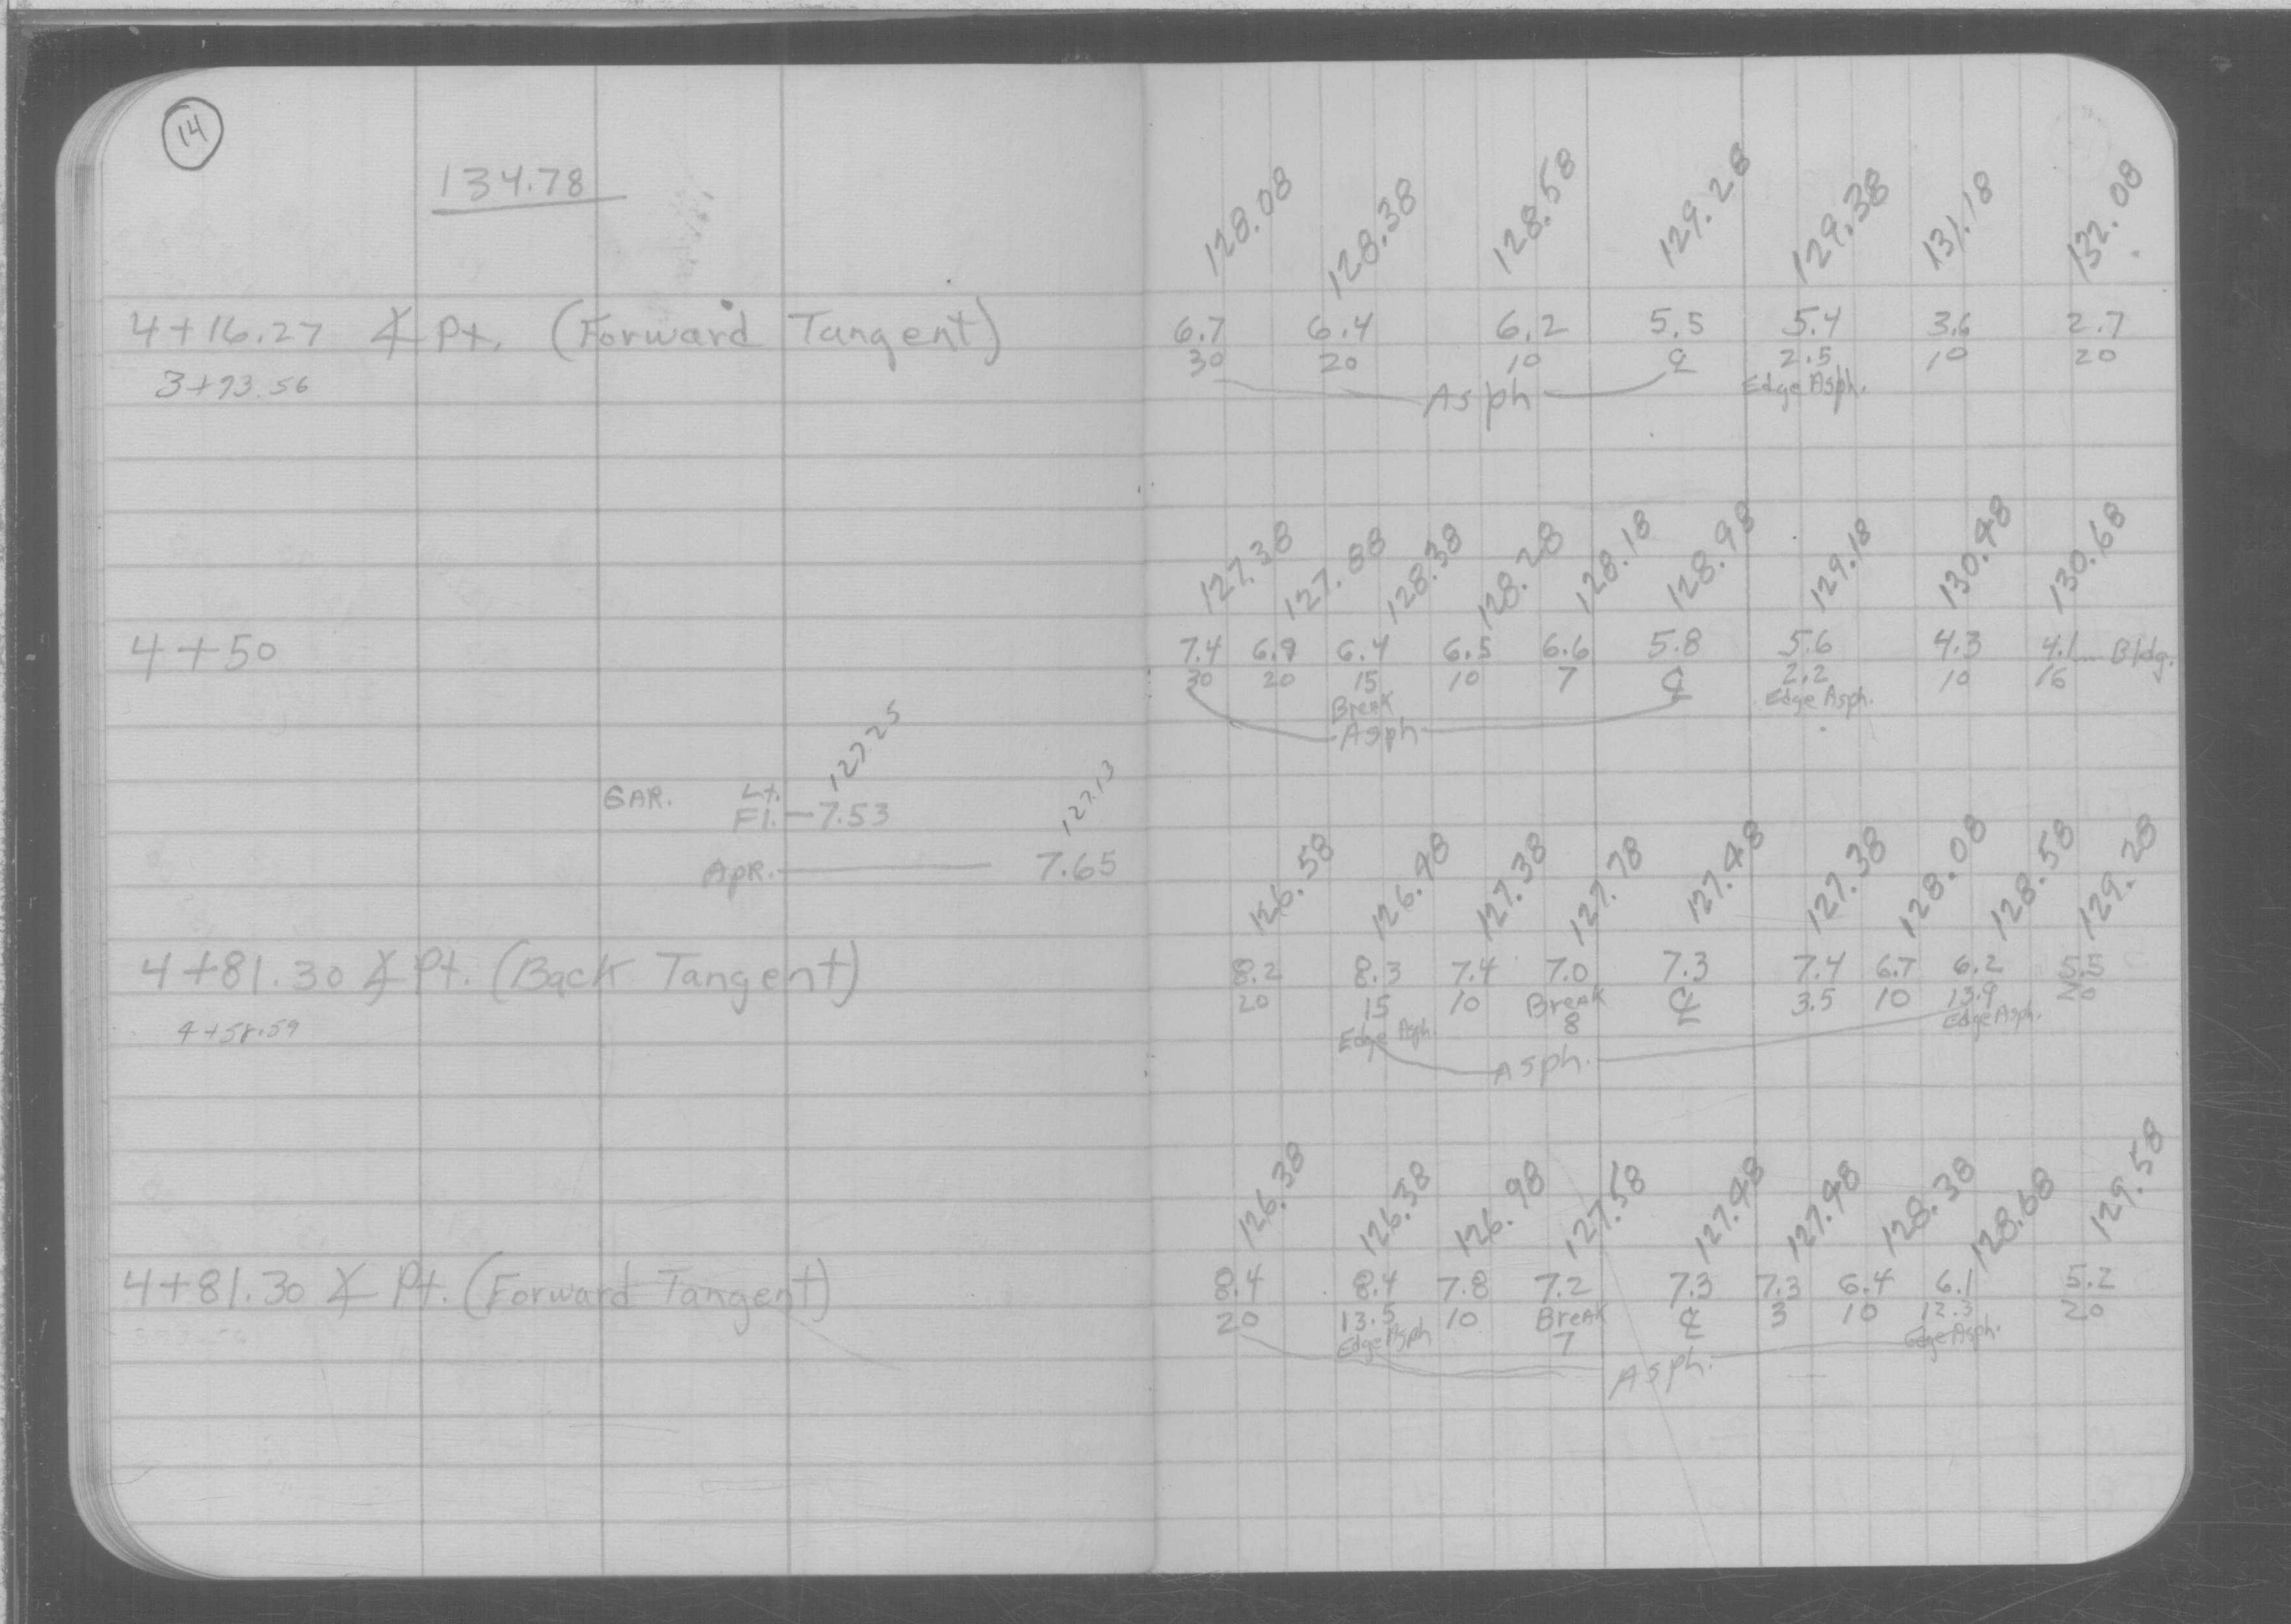 14
134.78
128.08 128.38 128.58 129.28 129.38 131.18 132.08
4+16.27 ∡ Pt. (Forward Tangent) 6.7 6.4 6.2 5.5 5.4 3.6 2.7
30 20 10 ℄ 2.5 10 20
3+93.56 Asph Edge Asph.
127.38 127.88 128.38 128.28 128.18 128.98 129.18 130.48 130.68
4+50 7.4 6.9 6.4 6.5 6.6 5.8 5.6 4.3 4.1 Bldg.
30 20 15 10 7 ℄ 2.2 10 16
Break Edge Asph.
Asph
127.25
GAR. Lt.
Fl. — 7.53 127.13
Apr. — 7.65
126.58 126.48 127.38 127.78 127.48 127.38 128.08 128.58 129.28
4+81.30 ∡ Pt. (Back Tangent) 8.2 8.3 7.4 7.0 7.3 7.4 6.7 6.2 5.5
20 15 10 Break ℄ 3.5 10 13.9 20
4+58.59 Edge Asph. 8 Edge Asph.
Asph.
126.38 126.38 126.98 127.58 127.48 127.48 128.38 128.68 129.58
4+81.30 ∡ Pt. (Forward Tangent) 8.4 8.4 7.8 7.2 7.3 7.3 6.4 6.1 5.2
20 13.5 10 Break ℄ 3 10 12.3 20
Edge Asph 7 Edge Asph.
Asph.